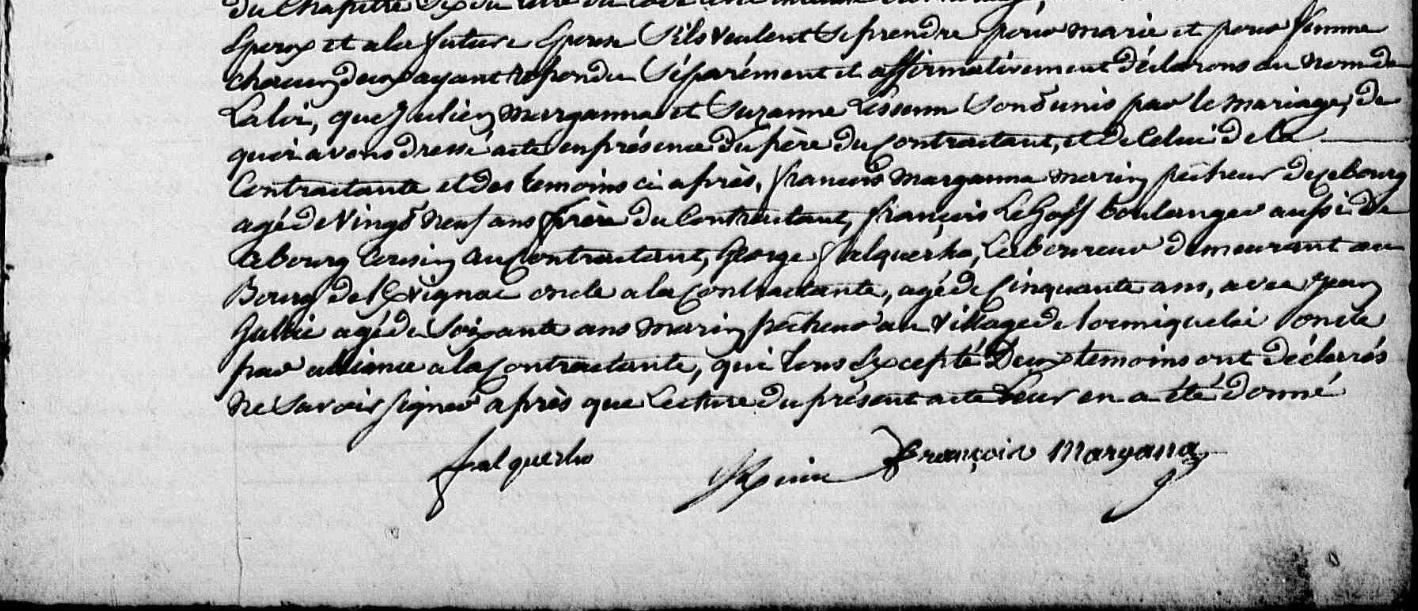 du Chapitre Six du titre du Code civil intitulé du mariage,
Epoux et a la future Epouse S'ils veulent Se prendre pour mari et pour femme
chacun deux ayant repondu Séparément et affirmativement déclarons au nom de
La loi, que Julien Marganna et Suzanne Lissenn Sont unis par le mariage, de
quoi avons dressé acte en présence du père du Contractant, et de Celui de la
Contractante et des temoins ci après, françois Marganna marin pêcheur de ce bourg
agé de Vingt neuf ans frère du Contractant, françois Le Goff boulanger aussi de
ce bourg Cousin au Contractant, George falquerho, Laboureur demeurant au
Bourg de oncle a la Contractante, agé de Cinquante ans, avec Jean
agé de Soixante ans marin pêcheur au Village de oncle
par alliance a la Contractante, qui tous Excepté Deux temoins ont déclarés
Ne Savoir Signer après que Lecture du présent acte Leur en a été donné
falquerho
François Margana